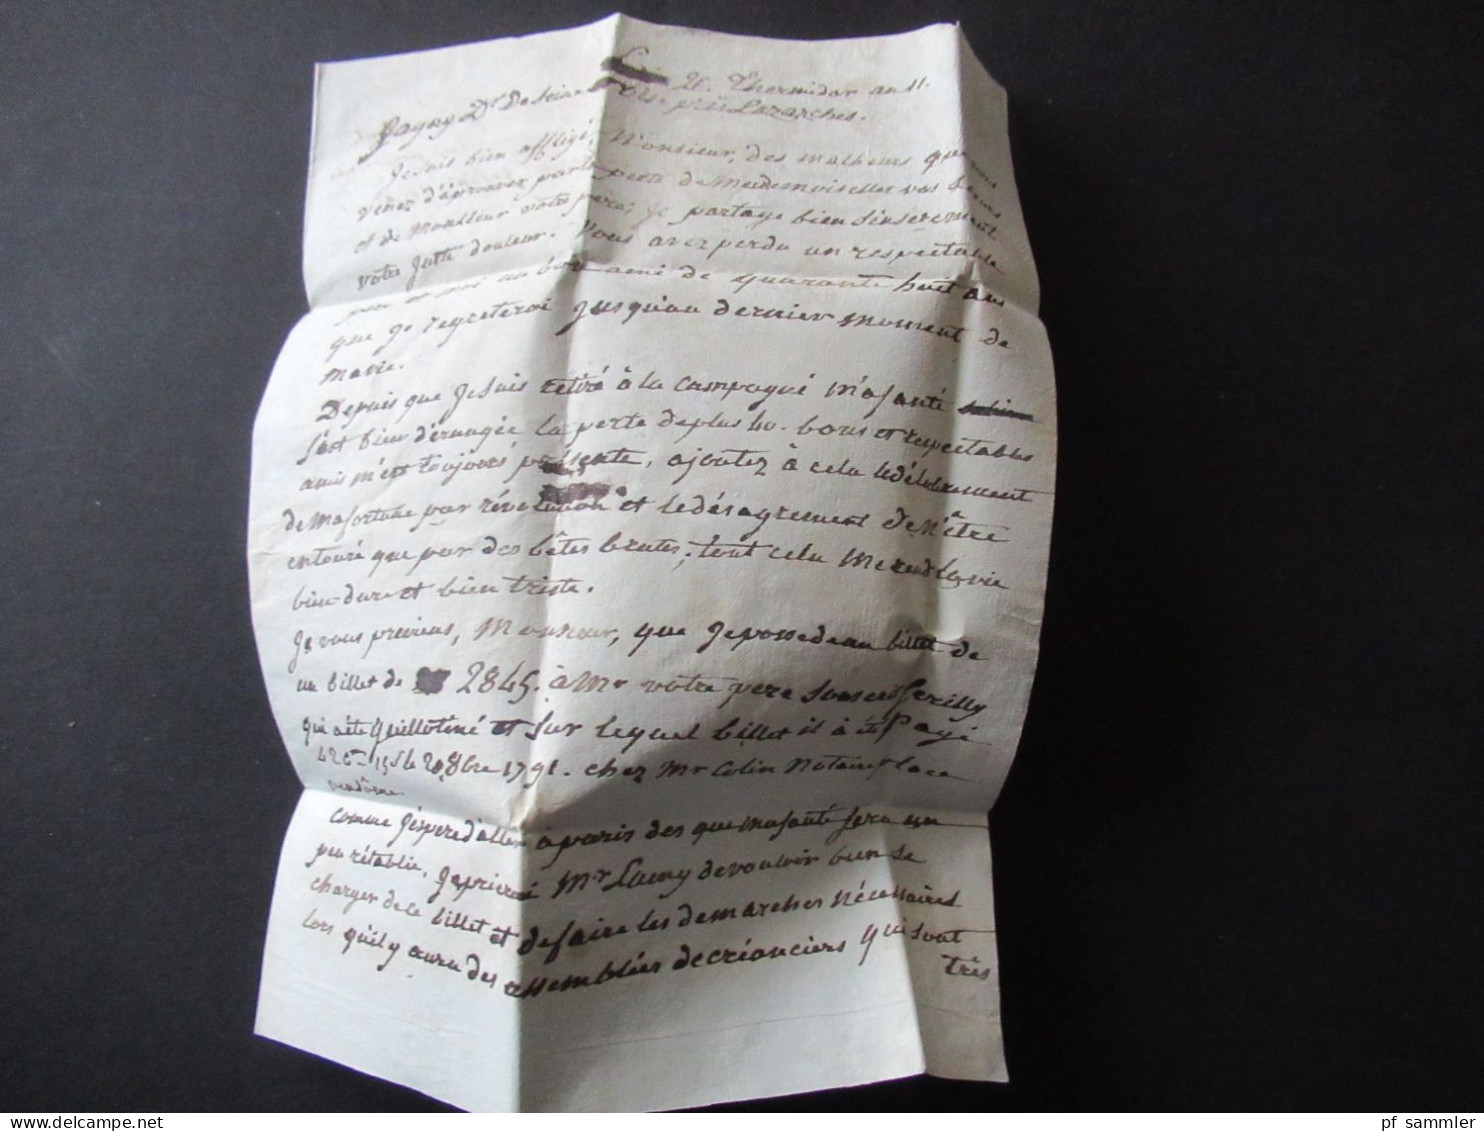 26. Thermidor an 11.
Jagny Dt. De Seine et Oise près Luzarches.
Je suis bien affligé, Monsieur, des malheurs que vous
venez d'éprouver par la perte de Mesdemoiselles vos Sœurs
et de Monsieur votre père; je partage bien sinserement
votre juste douleur. Vous avez perdu un respectable
père et moi un bon ami de quarante huit ans
que je regreterai jusqu'au dernier moment de
ma vie.
Depuis que je suis retiré à la campagne m'a santé
s'est bien d'érangée la perte de plus 40. bons et respectables
amis m'est toujours présente, ajoutez à cela le délabrement
de ma fortune par révolution et le désagrement de n'être
entouré que par des bêtes brutes; tout cela me rend la vie
bien dure et bien triste.
Je vous préviens, Monsieur, que je possede un billet de
un billet de 2845. à Mr votre père
qui a été guillotiné et sur lequel billet il à été Payé
le 20 8bre 1791. chez Mr Colin Notaire place
vendôme.
Comme j'éspere d'aller à paris des que ma santé sera un
peu rétablie, je prierai Mr Lamy de vouloir bien se
charger de ce billet et de faire les demarches nécessaires
lors qu'il y aura des assemblées de créanciers qui sont
très
pf_sammler